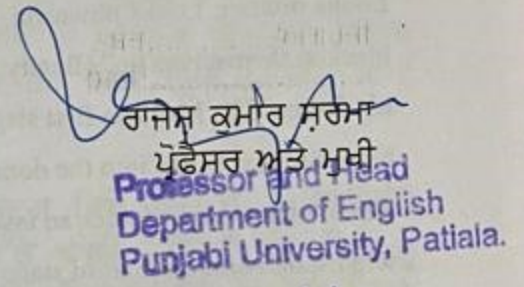 ਰਾਜੇਸ਼ ਕੁਮਾਰ ਸ਼ਰਮਾ
ਪ੍ਰੋਫੈਸਰ ਅਤੇ ਮੁਖੀ
Professor and Head
Department of English
Punjabi University, Patiala.